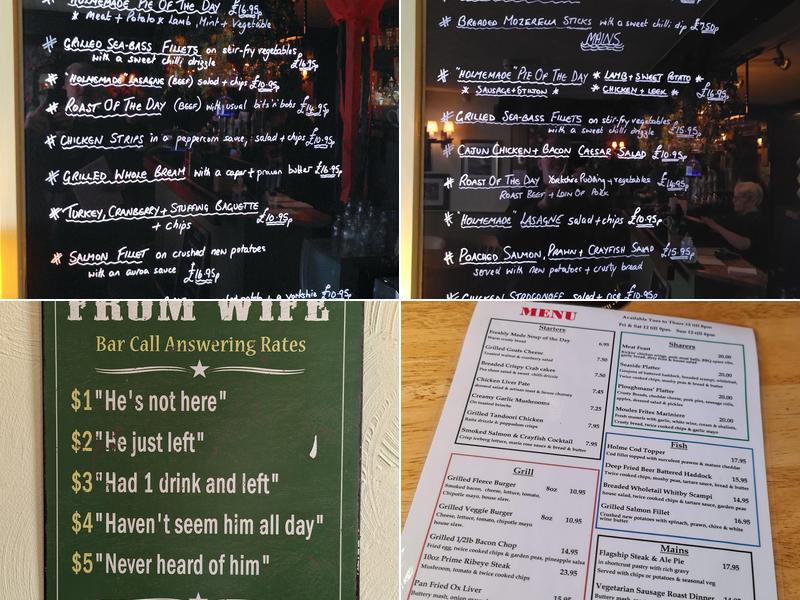 "HOMEMADE" PIE OF THE DAY £16.95p
* Meat + Potato * Lamb, Mint + Vegetable
* GRILLED SEA-BASS FILLETS on stir-fry vegetables
with a sweet chilli drizzle £16.95p
* "HOMEMADE" LASAGNE (BEEF) salad + chips £10.95p
* ROAST OF THE DAY (BEEF) with usual bits 'n' bobs £14.95p
* CHICKEN STRIPS in a peppercorn sauce, salad + chips £10.95p
* GRILLED WHOLE BREAM with a caper + prawn butter £16.95p
* TURKEY, CRANBERRY + STUFFING BAGUETTE
+ chips £10.95p
* SALMON FILLET on crushed new potatoes
with an auroa sauce £16.95p
+ a yorkshire £10.95p
* BREADED MOZERELLA STICKS with a sweet chilli dip £7.50p
MAINS
* "HOMEMADE" PIE OF THE DAY * LAMB + SWEET POTATO *
* SAUSAGE + STILTON * * CHICKEN + LEEK * £16.95p
* GRILLED SEA-BASS FILLETS on stir-fry vegetables
with a sweet chilli drizzle £15.95p
* CAJUN CHICKEN + BACON CAESAR SALAD £10.95p
* ROAST OF THE DAY Yorkshire Pudding + vegetables
ROAST BEEF + LOIN OF PORK £14.95p
* "HOMEMADE" LASAGNE salad + chips £10.95p
* POACHED SALMON, PRAWN + CRAYFISH SALAD £15.95p
served with new potatoes + crusty bread
* CHICKEN STROGONOFF salad + rice £10.95p
FROM WIFE
Bar Call Answering Rates
$1 "He's not here"
$2 "He just left"
$3 "Had 1 drink and left"
$4 "Haven't seem him all day"
$5 "Never heard of him"
MENU
Available Tues to Thurs 12 till 8pm
Fri & Sat 12 till 9pm. Sun 12 till 6pm
Starters
Freshly Made Soup of the Day 6.95
Warm crusty bread
Grilled Goats Cheese 7.50
Toasted walnut & cranberry salad
Breaded Crispy Crab cakes 7.50
Pea shoot salad & sweet chilli drizzle
Chicken Liver Pate 7.45
dressed salad & artisan toast & house chutney
Creamy Garlic Mushrooms 7.25
On toasted brioche
Grilled Tandoori Chicken 7.95
Raita drizzle & poppadum crisps
Smoked Salmon & Crayfish Cocktail 7.95
Crisp iceberg lettuce, marie rose sauce & bread & butter
Grill
Grilled Fleece Burger 8oz 10.95
Smoked bacon, cheese, lettuce, tomato,
Chipotle mayo, house slaw.
Grilled Veggie Burger 8oz 10.95
Cheese, lettuce, tomato, chipotle mayo
house slaw.
Grilled 1/2lb Bacon Chop 14.95
Fried egg, twice cooked chips & garden peas, pineapple salsa
10oz Prime Ribeye Steak 23.95
Mushroom, tomato & twice cooked chips
Pan Fried Ox Liver 15.95
Buttery mash, onion
Sharers
Meat Feast 20.00
Seaside Platter 20.00
Goujons of battered haddock, breaded scampi, whitebait,
Twice cooked chips, mushy peas, bread & butter
Ploughmans' Platter 20.00
Crusty Breads, cheddar cheese, pork pies, sausage rolls,
apples, dressed salad & pickles
Moules Frites Mariniere 20.00
Fresh mussels with garlic, white wine, cream & shallots,
Crusty bread, twice cooked chips & garlic mayo
Fish
Holme Cod Topper 17.95
Cod fillet topped with succulent prawns & mature cheddar
Deep Fried Beer Battered Haddock 15.95
Twice cooked chips, mushy peas, tartare sauce, bread & butter
Breaded Wholetail Whitby Scampi 14.95
house salad, twice cooked chips & tartare sauce, garden peas
Grilled Salmon Fillet 16.95
Crushed new potatoes with spinach, prawn, chive & white
wine butter
Mains
Flagship Steak & Ale Pie 17.95
in shortcrust pastry with rich gravy
Served with chips or potatoes & seasonal veg
Vegetarian Sausage Roast Dinner